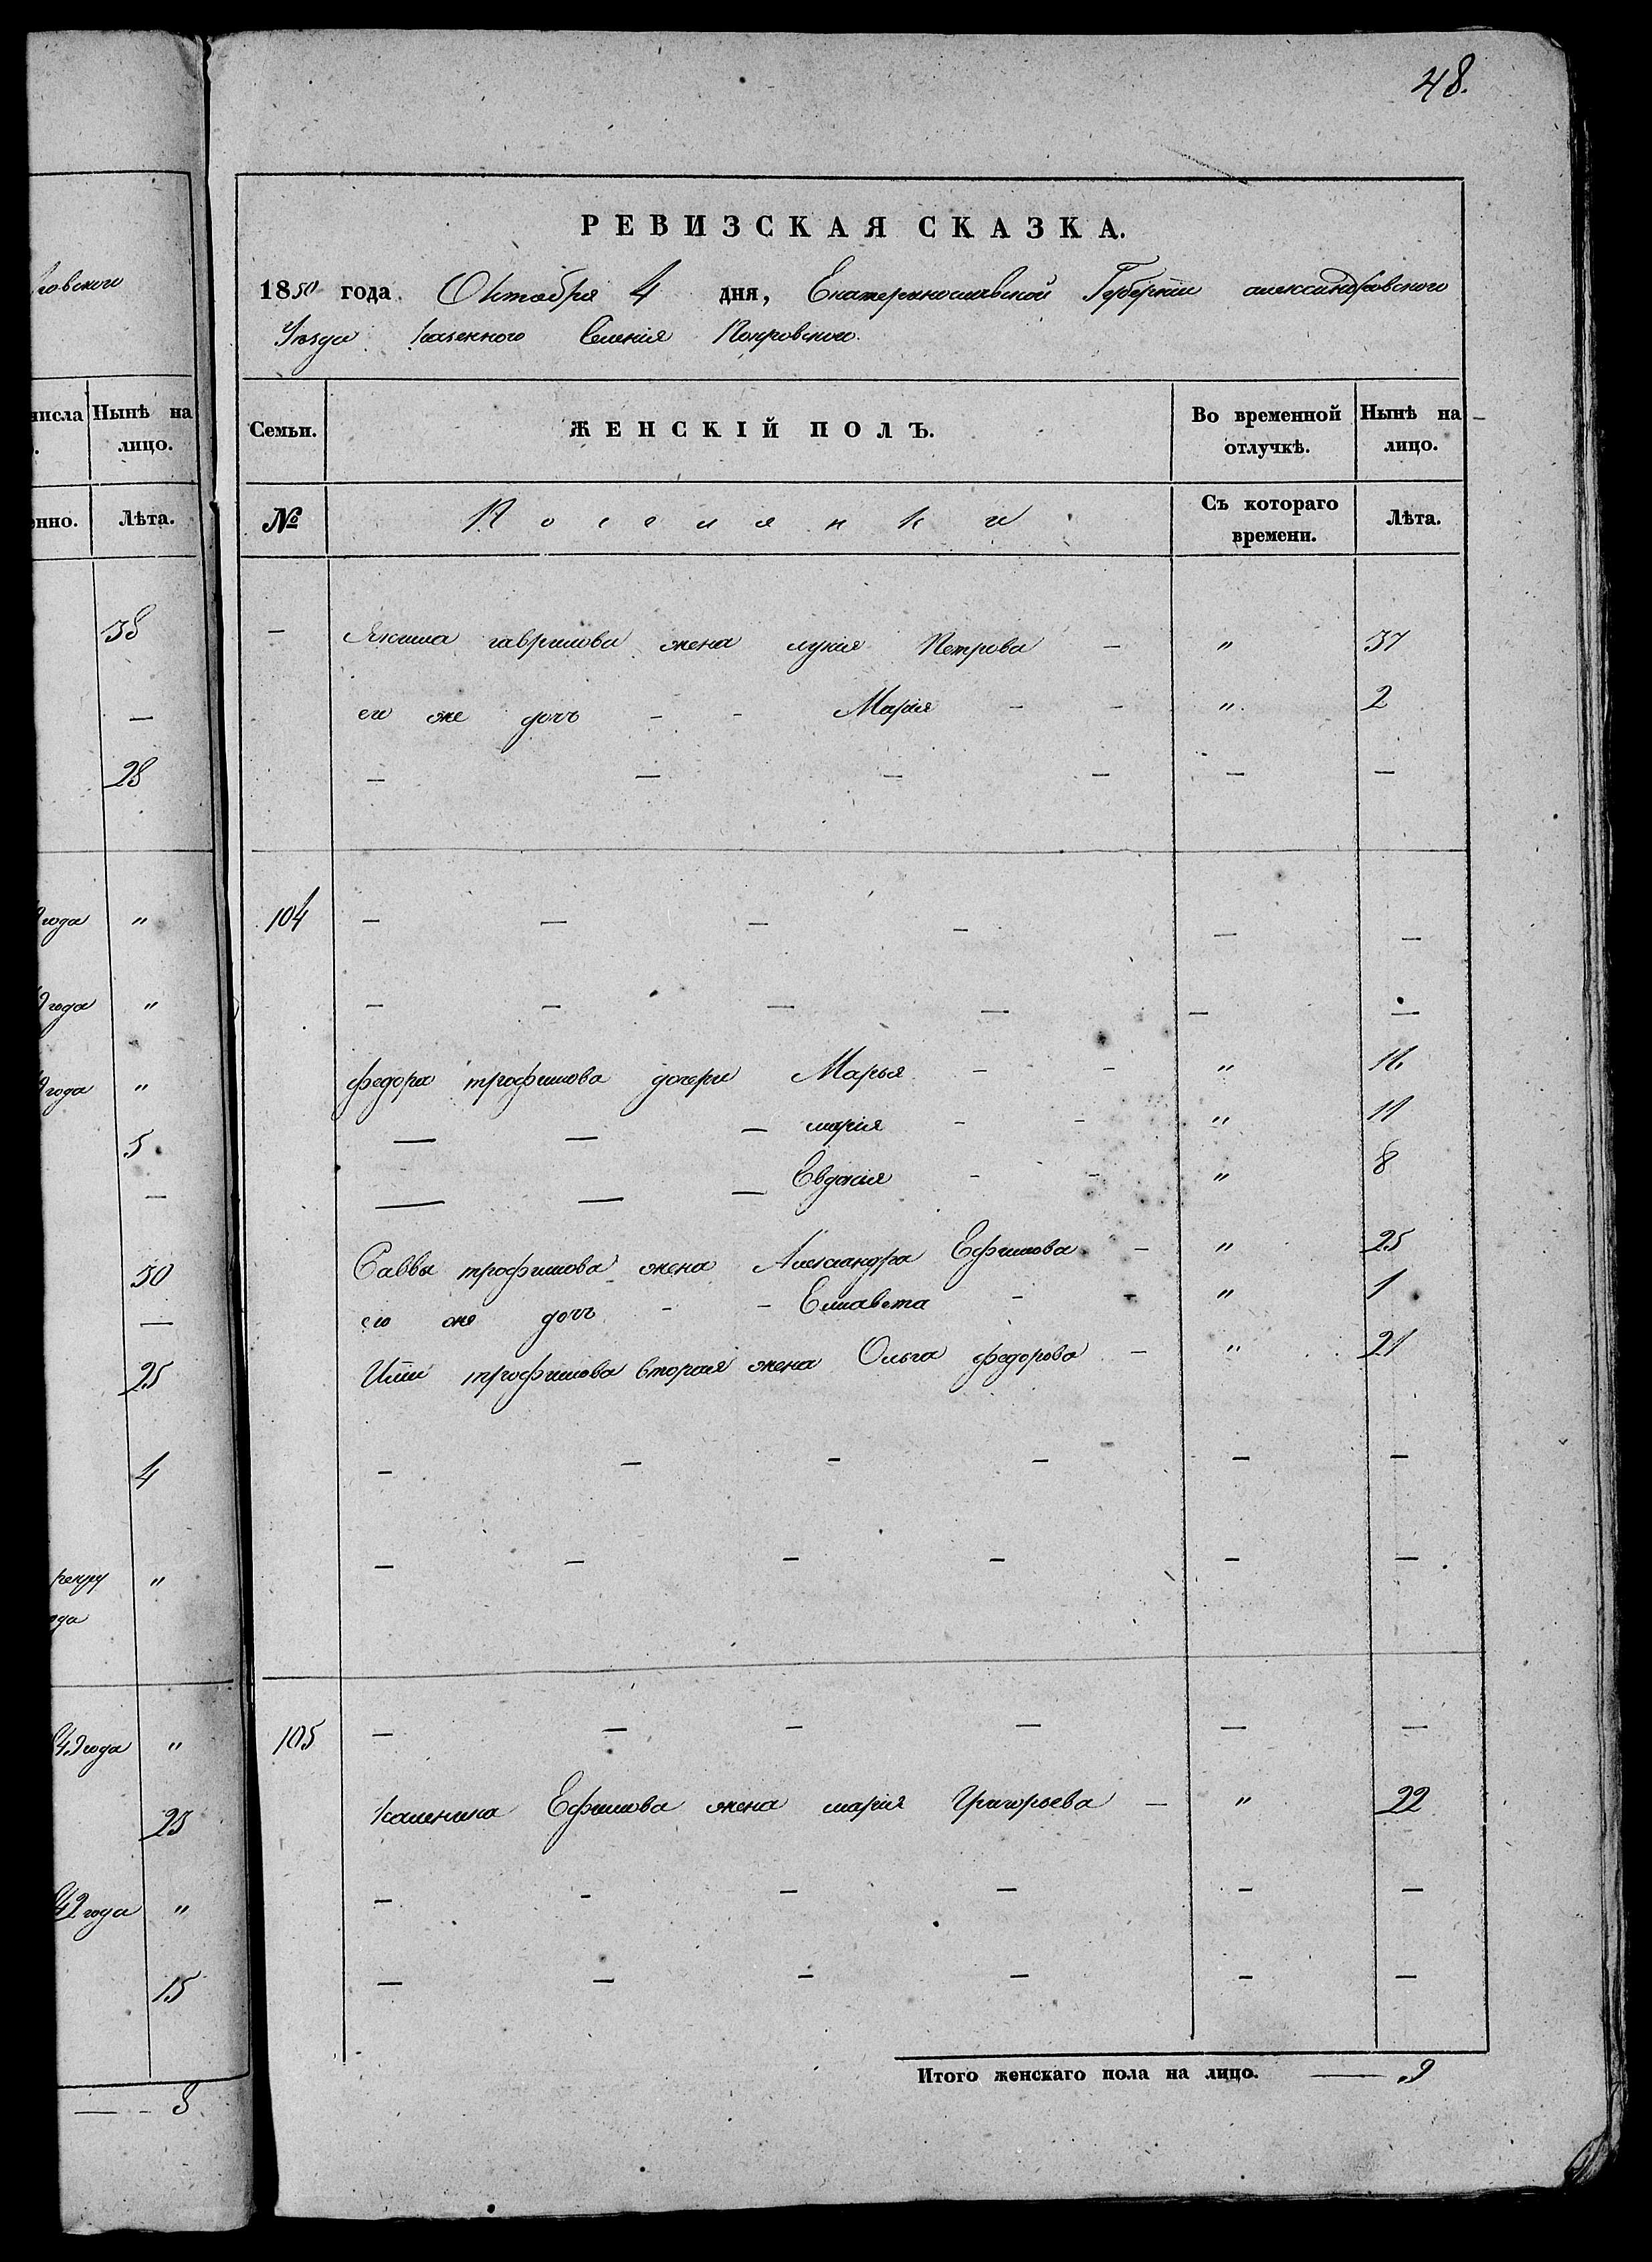 48.
РЕВИЗСКАЯ СКАЗКА.
1850 года Октября 4 дня, Екатеринославской Губернии александровского
Уезда казенного Селения Покровского
Семьи. ЖЕНСКІЙ ПОЛЪ. Во временной отлучкѣ. Нынѣ на лицо.
№ Поселянки Съ котораго времени. Лѣта.
— Якима гаврилова жена лукия Петрова — " 37
его же дочь - - Мария - - " 2
— — — — — —
104 — — — — — —
— — — — — —
федора трофимова дочери Марья - - "
— — — мария - - " 11
— — — Евдокия - - " 8
Саввы трофимова жена Александра Ефимова — " 25
его же дочь - - Елисавета - - " 1
Или трофимова вторая жена Ольга федорова — " 21
— — — — — —
— — — — — —
105 — — — — — —
каленика Ефимова жена мария Григорьева — " 22
— — — — — —
— — — — — —
Итого женскаго пола на лицо. — 9
говского
числа Нынѣ на
лицо.
енно. Лѣта.
38
—
28
года "
9 года "
9 года "
5
—
30
—
25
4
"
ода
49 года "
25
42 года "
15
— - 8